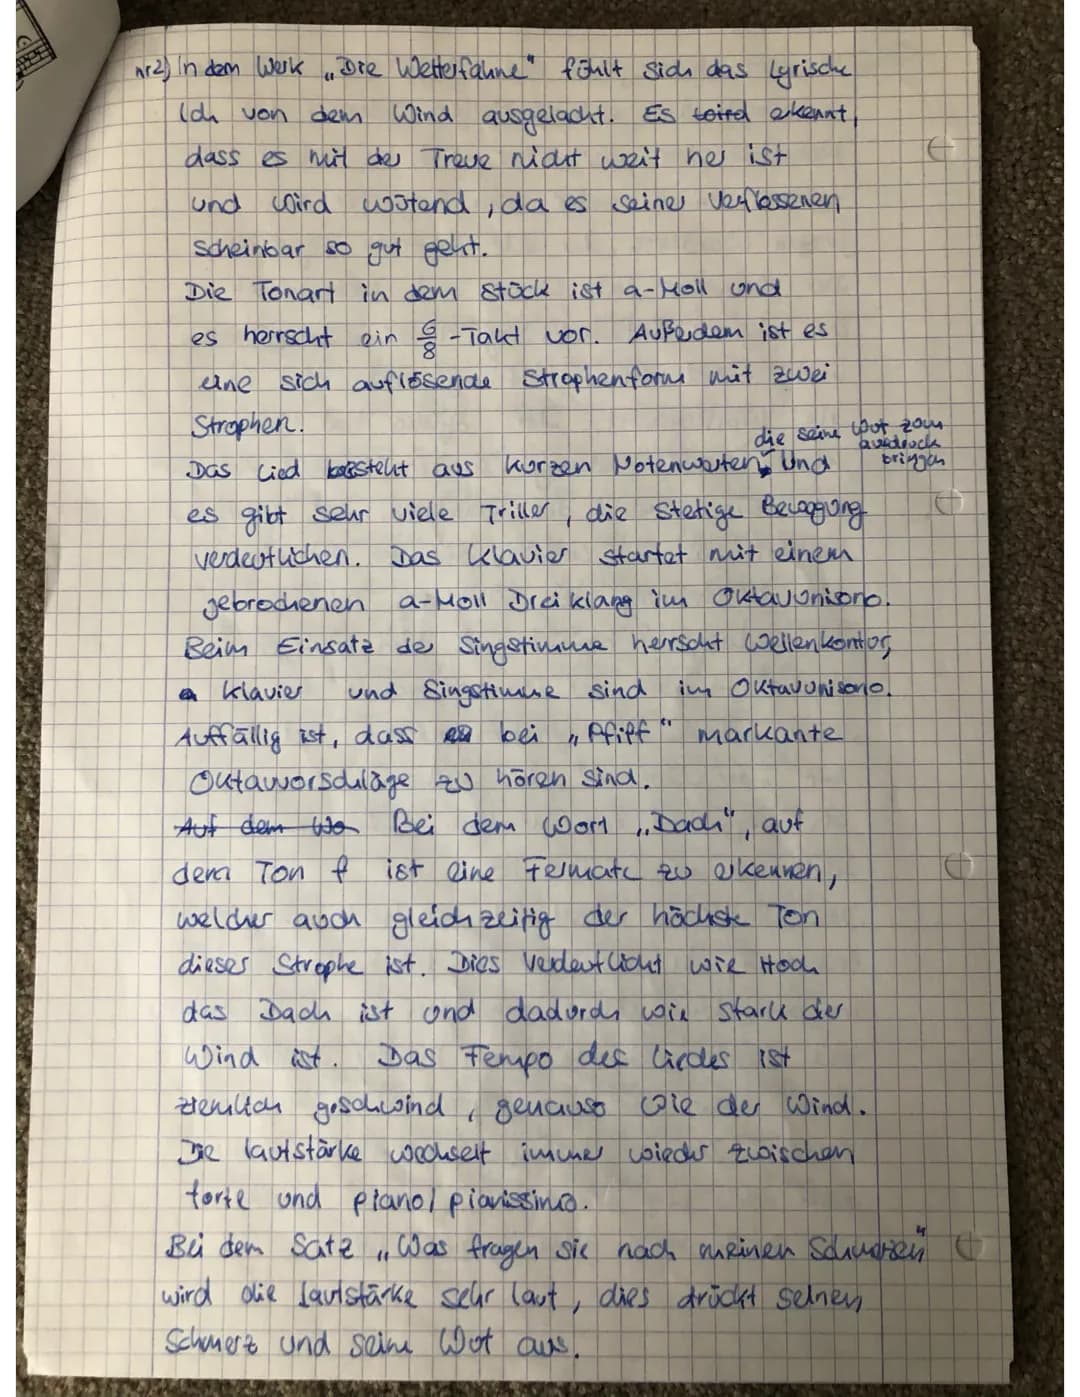 nr2) In dem Werk „Die Wetterfahne" fühlt sich das Lyrische
Ich von dem Wind ausgelacht. Es wird erkennt,
dass es mit der Treue nicht weit her ist
und wird wütend, da es seiner Verflossenen
scheinbar so gut geht.
Die Tonart in dem Stück ist a-Moll und
es herrscht ein 6/8-Takt vor. Außerdem ist es
eine sich auflösende Strophenform mit zwei
Strophen.
die seine Wut zum
ausdruck
bringen
Das Lied besteht aus kurzen Notenwerten und
es gibt sehr viele Triller, die stetige Bewegung
verdeutlichen. Das Klavier startet mit einem
gebrochenen a-Moll Dreiklang im Oktavunisono.
Beim Einsatz der Singstimme herrscht Wellenkontur,
Klavier und Singstimme sind im Oktavunisono.
Auffällig ist, dass bei „Pfiff" markante
Oktavvorschläge zu hören sind.
Auf dem Wo Bei dem Wort „Dach", auf
dem Ton f ist eine Fermate zu erkennen,
welcher auch gleichzeitig der höchste Ton
dieser Strophe ist. Dies verdeutlicht wie Hoch
das Dach ist und dadurch wie stark der
Wind ist. Das Tempo des Liedes ist
ziemlich geschwind, genauso wie der Wind.
Die lautstärke wechselt immer wieder zwischen
forte und piano/pianissimo.
Bei dem Satz „Was fragen sie nach meinen Schmerzen"
wird die Lautstärke sehr laut, dies drückt seinen
Schmerz und seine Wut aus.